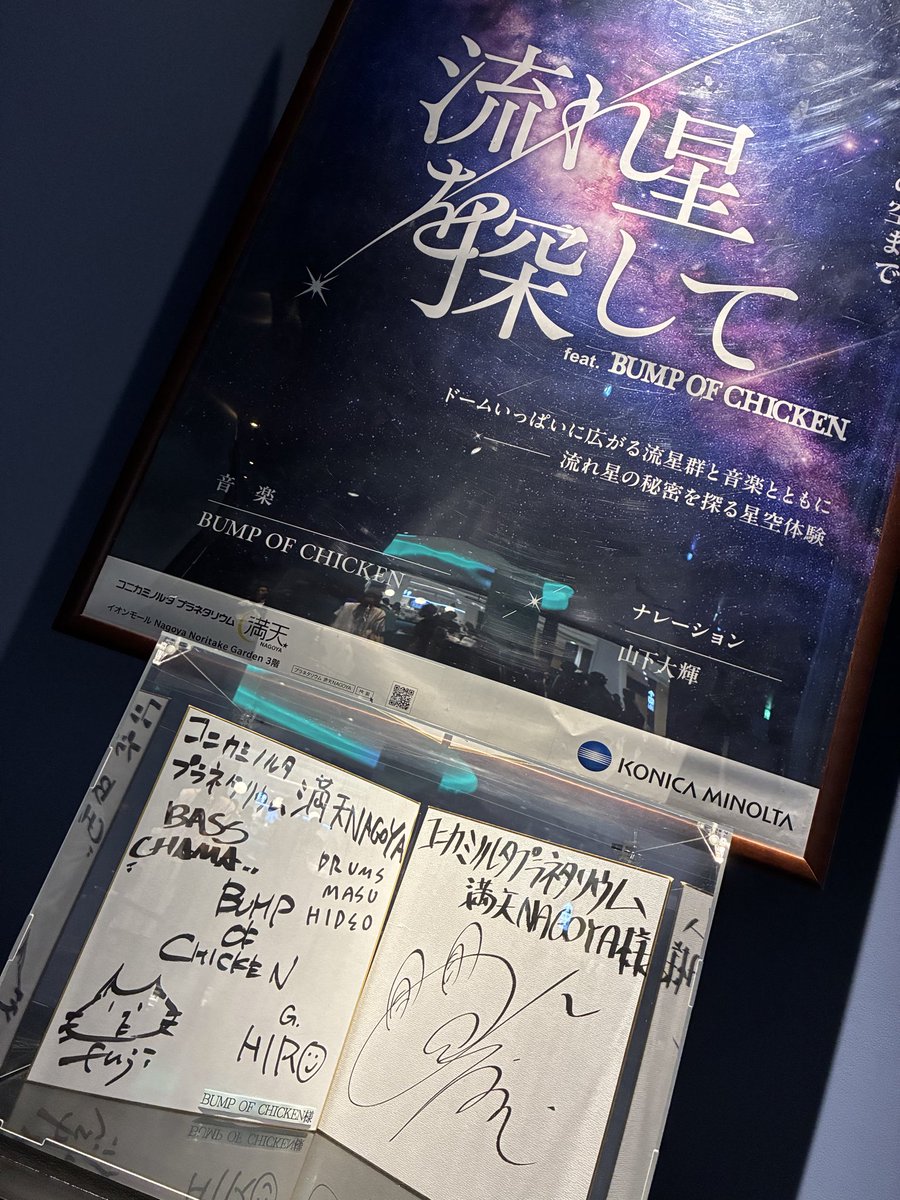 流れ星
を探して
feat. BUMP OF CHICKEN
ドームいっぱいに広がる流星群と音楽とともに
流れ星の秘密を探る星空体験
音楽
BUMP OF CHICKEN
ナレーション
山下大輝
コニカミノルタ プラネタリウム 満天 NAGOYA
イオンモール Nagoya Noritake Garden 3階
KONICA MINOLTA
コニカミノルタ
プラネタリウム 満天NAGOYA
BASS
CHAMA..
DRUMS
MASU
HIDEO
BUMP
OF
CHICKEN
fuji
G.
HIRO
BUMP OF CHICKEN様
コニカミノルタプラネタリウム
満天NAGOYA様